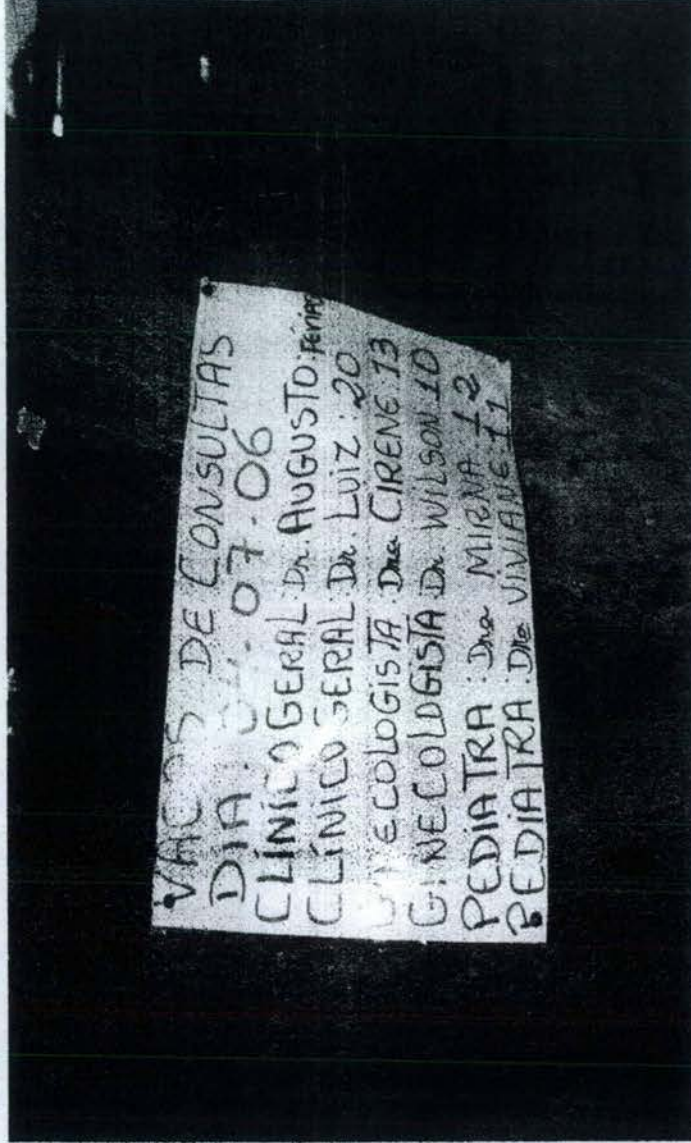 VAGAS DE CONSULTAS
DIA: 04.07.06
CLÍNICO GERAL: Dr. AUGUSTO: FÉRIAS
CLÍNICO GERAL: Dr. LUIZ: 20
GINECOLOGISTA: Dra CIRENE: 13
GINECOLOGISTA: Dr. WILSON 10
PEDIATRA: Dra MIRNA 12
PEDIATRA: Dra VIVIANE: 11